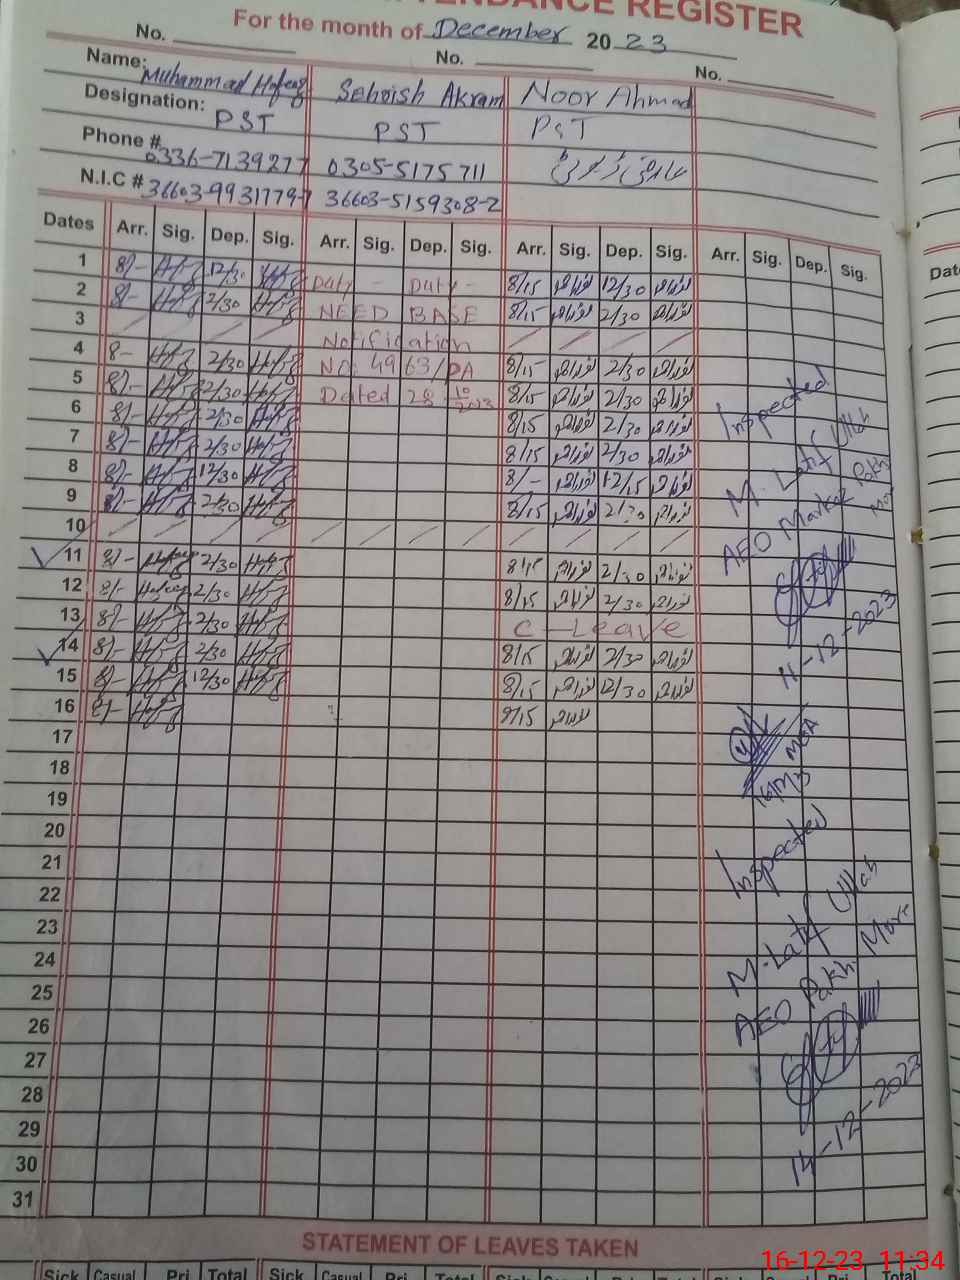 ATTENDANCE REGISTER
For the month of December 2023
No. No. No.
Name: Muhammad Hafeez Sehrish Akram Noor Ahmad
Designation: PST PST PST
Phone # 0336-7139277 0305-5175711
N.I.C # 36603-9931779-7 36603-5159308-2
Dates Arr. Sig. Dep. Sig. Arr. Sig. Dep. Sig. Arr. Sig. Dep. Sig. Arr. Sig. Dep. Sig.
1 8/- 12/30 Duty - Duty - 8/15 12/30
2 8/- 2/30 NEED BASE 8/15 2/30
3 Notification
4 8- 2/30 NO. 4963/DA 8/15 2/30
5 8/- 2/30 Dated 28 10/2023 8/15 2/30
6 8/- 2/30 8/15 2/30
7 8/- 2/30 8/15 2/30
8 8/- 12/30 8/- 12/15
9 8/- 2/30 8/15 2/30
10
11 8/- 2/30 8/15 2/30
12 8/- 2/30 8/15 2/30
13 8/- 2/30 C-Leave
14 8/- 2/30 8/15 2/30
15 8/- 12/30 8/15 12/30
16 8/-
17
18
19
20
21
22
23
24
25
26
27
28
29
30
31
Inspected
M. Latif Ullah
AEO Markaz Pakhi
Mor
11-12-2023
Inspected
M. Latif Ullah
AEO Pakhi More
14-12-2023
STATEMENT OF LEAVES TAKEN
Sick Casual Pri Total Sick Casual Pri Total Sick
16-12-23 11:34